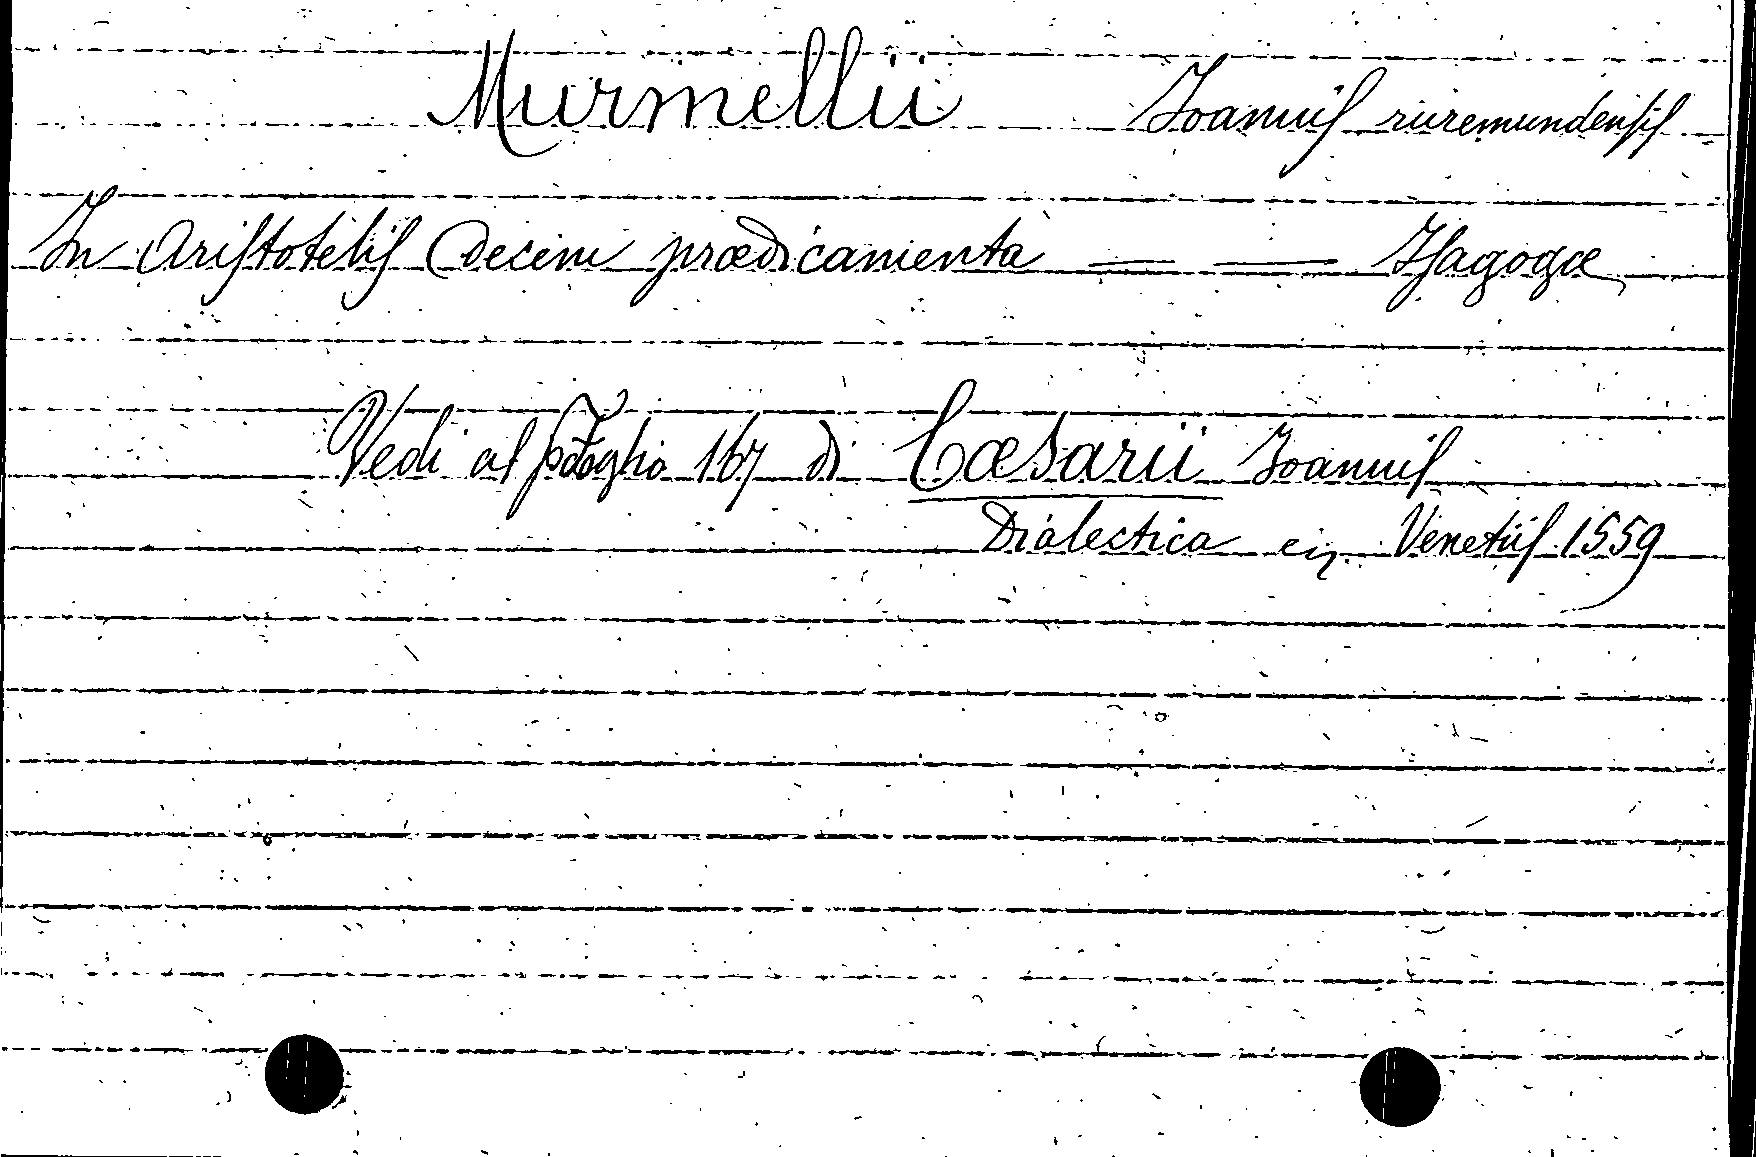 Murmellii Joannis ruremundensis
In Aristotelis Decem prædicamenta — — Isagoga
Vedi al Foglio 167 di Cæsarii Joannis
Dialectica Venetiis 1559